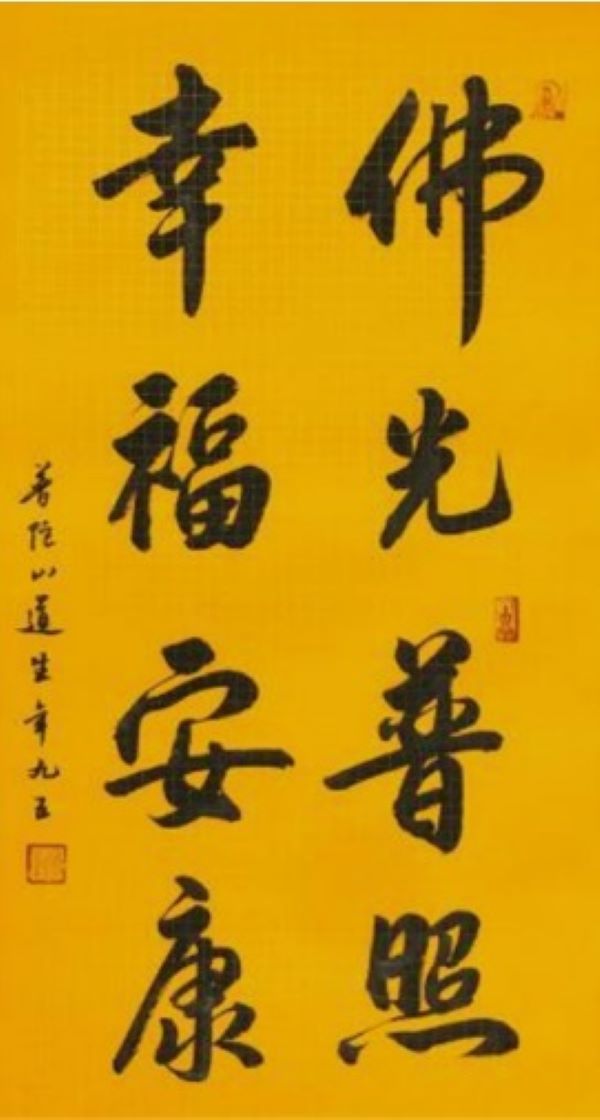 佛光普照
幸福安康
普陀山道生年九五